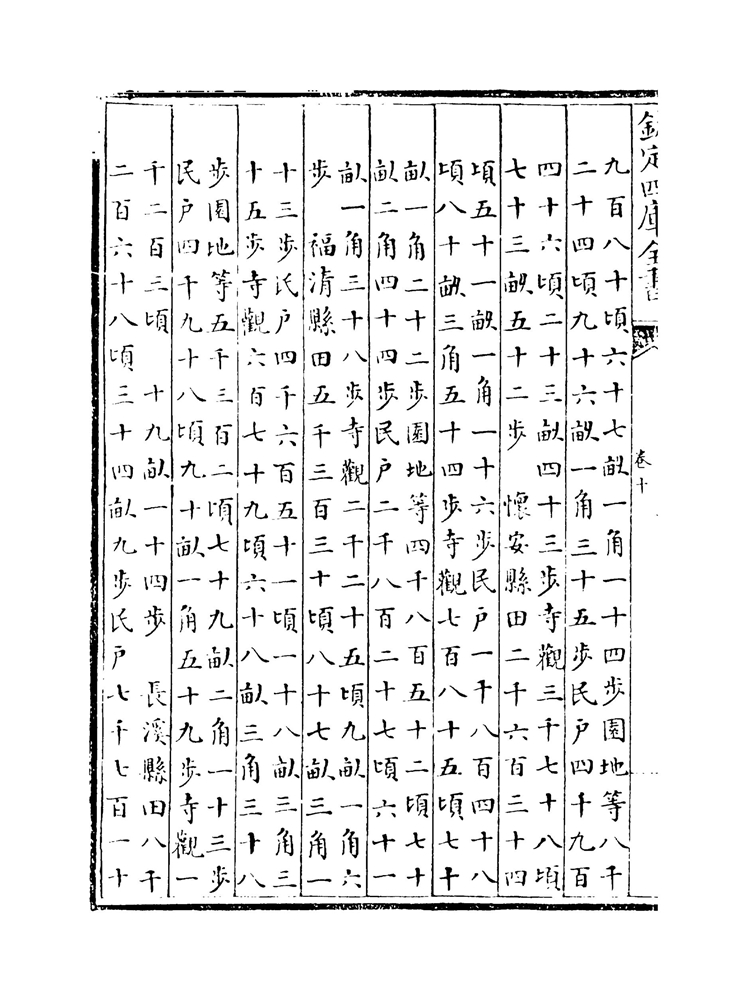 欽定四庫全書
卷十
九百八十頃六十七畝一角一十四步園地等八千
二十四頃九十六畝一角三十五步民戶四千九百
四十六頃二十三畝四十三步寺觀三千七十八頃
七十三畝五十二步　懷安縣田二千六百三十四
頃五十一畝一角一十六步民戶一千八百四十八
頃八十畝三角五十四步寺觀七百八十五頃七十
畝一角二十二步園地等四千八百五十二頃七十
畝二角四十四步民戶二千八百二十七頃六十一
畝一角三十八步寺觀二千二十五頃九畝一角六
步　福清縣田五千三百三十頃八十七畝三角一
十三步民戶四千六百五十一頃一十八畝三角三
十五步寺觀六百七十九頃六十八畝三角三十八
步園地等五千三百二頃七十九畝二角一十三步
民戶四千九十八頃九十畝一角五十九步寺觀一
千二百三頃　十九畝一十四步　長溪縣田八千
二百六十八頃三十四畝九步民戶七千七百一十